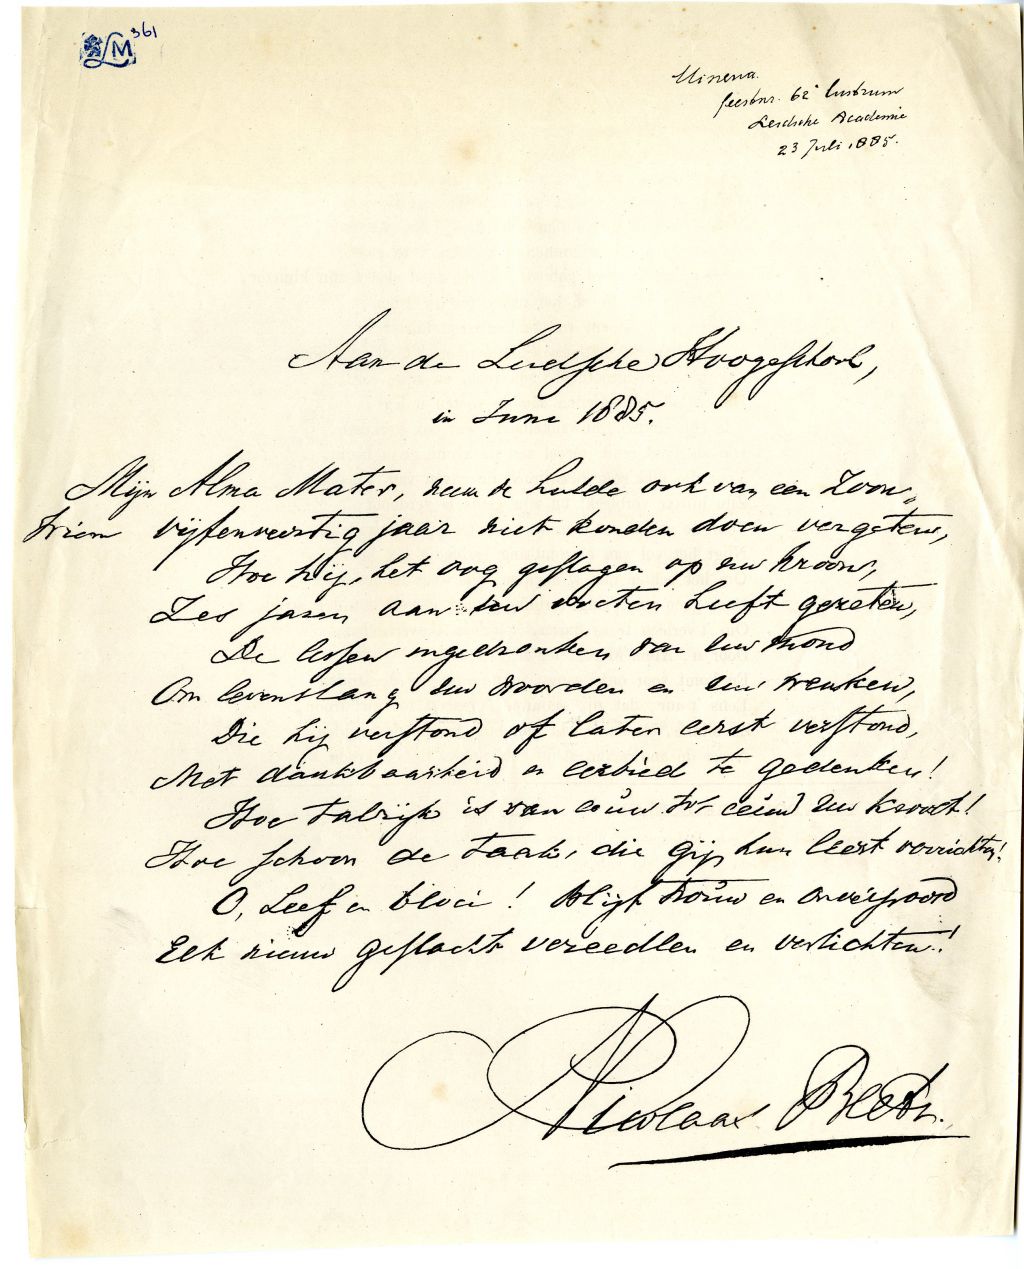 LM 361
Minerva.
feestnr. 62e lustrum
Leidsche Academie
23 Juli 1885.
Aan de Leidsche Hoogeschool,
in Juni 1885.
Mijn Alma Mater, neem de hulde ook van een Zoon,
Wien vijfenveertig jaar niet konden doen vergeten,
Hoe hij, het oog geslagen op uw kroon,
Zes jaren aan uw voeten heeft gezeten,
De lessen ingedronken van uw mond
Om levenslang uw woorden en uw wenken,
Die hij verstond of later eerst verstond,
Met dankbaarheid en eerbied te gedenken!
Hoe talrijk is van eeuw tot eeuw uw kroost!
Hoe schoon de taak, die gij hun leert verrichten!
O, Leef en bloei! Blijf trouw en
Elk nieuw geslacht veredlen en verlichten!
Nicolaas Beets.